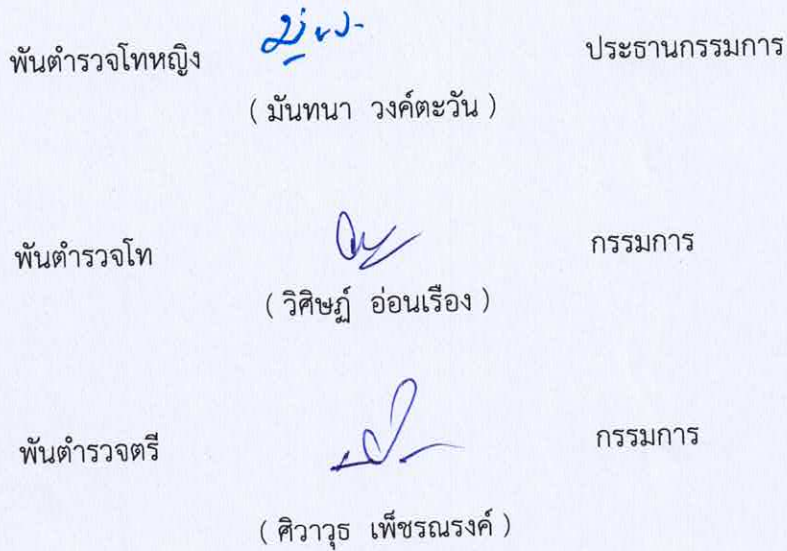 พันตำรวจโทหญิง ประธานกรรมการ
( มันทนา วงค์ตะวัน )
พันตำรวจโท กรรมการ
( วิศิษฏ์ อ่อนเรือง )
พันตำรวจตรี กรรมการ
( ศิวาวุธ เพ็ชรณรงค์ )